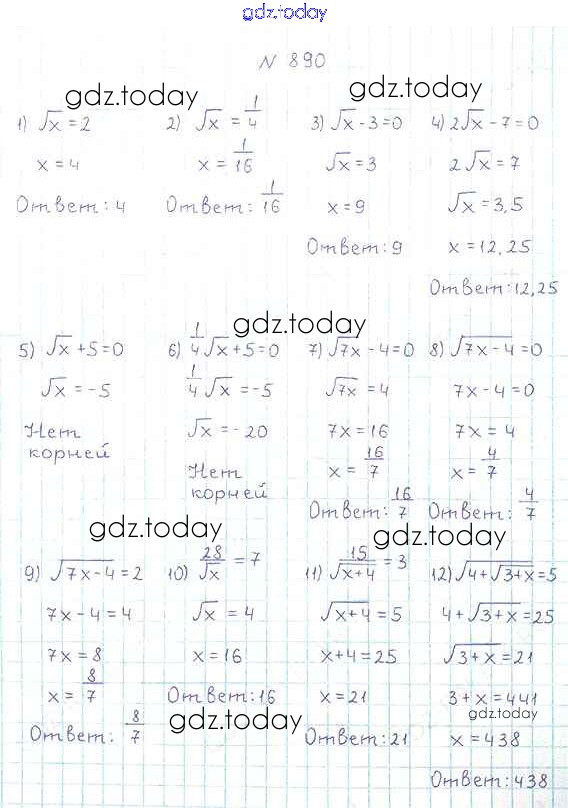 gdz.today
N 890
gdz.today
1) √x = 2
x = 4
Ответ: 4
2) √x = 1/4
x = 1/16
Ответ: 1/16
gdz.today
3) √x - 3 = 0
√x = 3
x = 9
Ответ: 9
4) 2√x - 7 = 0
2√x = 7
√x = 3,5
x = 12,25
Ответ: 12,25
gdz.today
5) √x + 5 = 0
√x = -5
Нет
корней
6) 1/4 √x + 5 = 0
1/4 √x = -5
√x = -20
Нет
корней
7) √7x - 4 = 0
√7x = 4
7x = 16
x = 16/7
Ответ: 16/7
8) √(7x - 4) = 0
7x - 4 = 0
7x = 4
x = 4/7
Ответ: 4/7
gdz.today
gdz.today
9) √(7x - 4) = 2
7x - 4 = 4
7x = 8
x = 8/7
Ответ: 8/7
10) 28/√x = 7
√x = 4
x = 16
Ответ: 16
gdz.today
11) 15/√(x+4) = 3
√(x+4) = 5
x+4 = 25
x = 21
Ответ: 21
12) √(4+√(3+x)) = 5
4 + √(3+x) = 25
√(3+x) = 21
3 + x = 441
gdz.today
x = 438
Ответ: 438